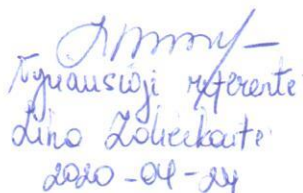 Vyriausioji referentė
Lina Zolieckaitė
2020-04-24